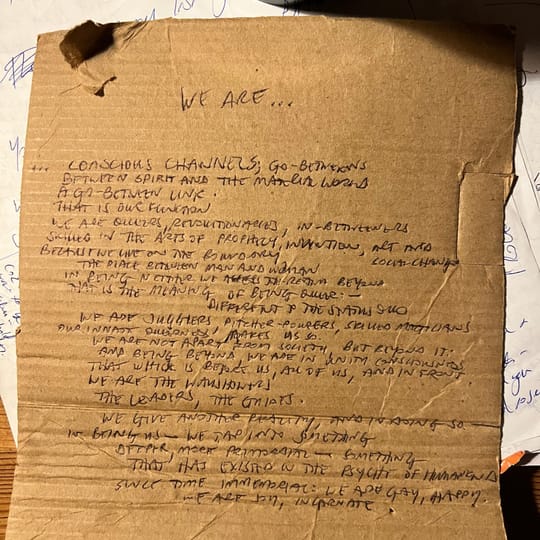 WE ARE...
... CONSCIOUS CHANNELS, GO-BETWEENS
BETWEEN SPIRIT AND THE MATERIAL WORLD
A GO-BETWEEN LINK.
THAT IS OUR FUNCTION
WE ARE QUEERS, REVOLUTIONARIES, IN-BETWEENERS
SKILLED IN THE ARTS OF PROPHECY, INVENTION, ART AND
SOCIAL CHANGE
BECAUSE WE LIVE ON THE BOUNDARY
THE PLACE BETWEEN MAN AND WOMAN
IN BEING NEITHER WE ACCESS THE REALM BEYOND
THAT IS THE MEANING OF BEING QUEER:—
DIFFERENT TO THE STATUS QUO
WE ARE JUGGLERS, PITCHER-POURERS, SKILLED MAGICIANS
OUR INNATE QUEERNESS MAKES US SO.
WE ARE NOT APART FROM SOCIETY, BUT BEYOND IT.
AND BEING BEYOND, WE ARE IN UNITY CONSCIOUSNESS
THAT WHICH IS BEFORE US, ALL OF US, AND IN FRONT
WE ARE THE WAYSHOWERS
THE LEADERS, THE GUIDES.
WE GIVE ANOTHER REALITY, AND IN DOING SO —
IN BEING US — WE TAP INTO SOMETHING
DEEPER, MORE PRIMORDIAL — SOMETHING
THAT HAS EXISTED IN THE PSYCHE OF HUMANKIND
SINCE TIME IMMEMORIAL: WE ARE GAY, HAPPY.
WE ARE JOY, INCARNATE.